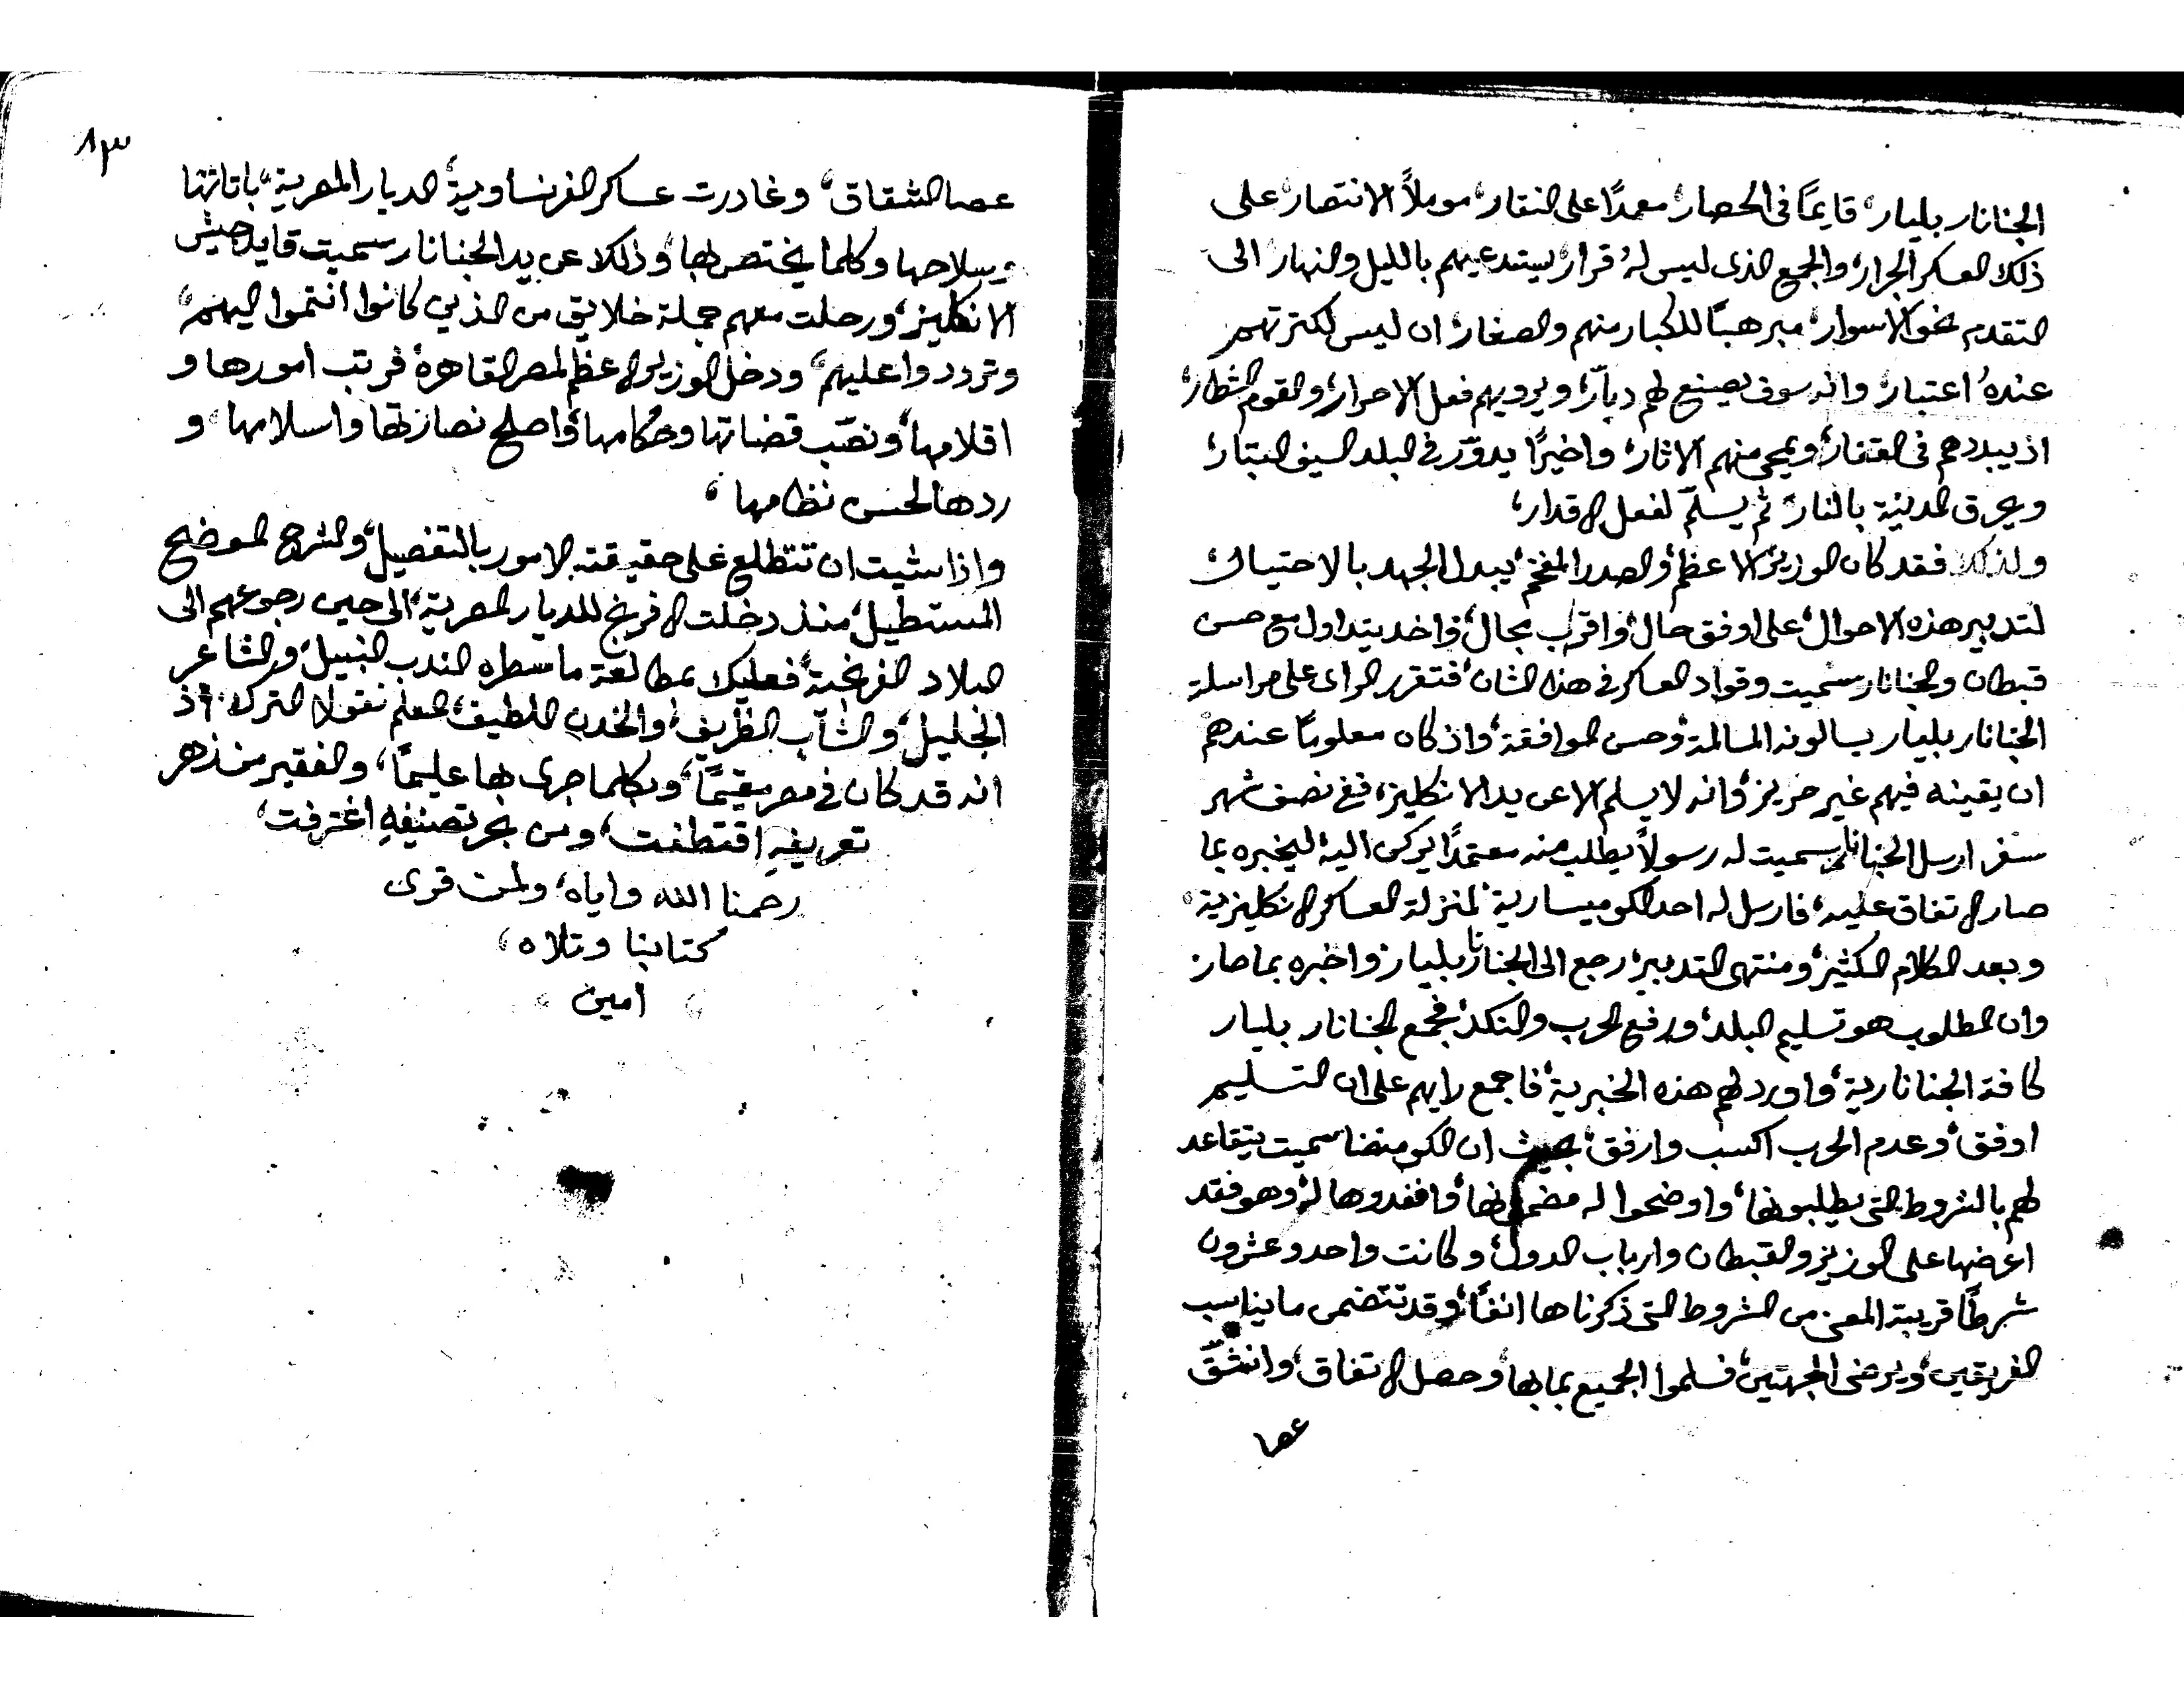 الجنانار بليار، قايمًا فى الحصار، معمدًا على النقار، موملاً الانتصار، على
ذلك العسكر الجرار، والجمع الذى ليس لهُ قرار، يستدعيهم بالليل والنهار، الى
التقدم نحو الاسوار، مبرهبًا للكبار منهم والصغار، ان ليس لكثرتهم
عندهُ اعتبار، وانه سوف يصنع لهم دبارً، ويرويهم فعل الاحرار، والقوم الشطار،
اذ يبددهم فى القفار، ويمحى منهم الاثار، واخيرًا يدوّر فى البلد السيف البتار،
ويحرق المدينة بالنار، ثم يسلّم لفعل الاقدار،
ولذلك فقد كان الوزير الاعظم، والصدر المفخم، يبدل الجهد بالاحتيال،
لتدبير هذه الاحوال، على اوفق حال، واقرب مجال، واخد يتداول مع حسن
قبطان والجنانار سميت وقواد العساكر فى هذا الشان، فتقرر الراى على مراسلة
الجنانار بليار يسالونه المسالمة، وحسن الموافقة، واذ كان معلومًا عندهم
ان يقينه فيهم غير حريز، وانه لا يسلم الا عن يد الانكليز، ففى نصف شهر
سفر ارسل الجنانار سميت له رسولاً يطلب منه معتمدًا يركن اليه ليخبره بما
صار الاتفاق عليه، فارسل له احد الكوميسارية، لمنزلة العساكر الانكليزية،
وبعد الكلام الكثير، ومنتهى التدبير، رجع الى الجنانار بليار واخبره بما صار
وان المطلوب هو تسليم البلد، ورفع الحرب والنكد، فجمع الجنانار بليار
كافة الجنانارية، واورد لهم هذه الخبرية، فاجمع رايهم على ان التسليم
اوفق، وعدم الحرب اكسب وارفق، بحيث ان الكومنضا سميت يتقاعد
لهم بالشروط التى يطلبونها، واوضحوا له مضمونها، وانفدوها له، وهو فقد
اعرضها على الوزير والقبطان وارباب الدول، وكانت واحد وعشرون
شرطًا قريبة المعنى من الشروط التى ذكرناها انفًا، وقد تتضمن ما يناسب
الفريقين، ويرضى الجهتين، فسلموا الجميع بما بها، وحصل الاتفاق، وانشقّ
عصا
٨٣
عصا الشقاق، وغادرت عساكر الفرنساوية، الديار المصرية، باثاثها
وسلاحها وكلما يختص بها، وذلك عن يد الجنانار سميت قايد جيش
الانكليز، ورحلت معهم جملة خلايق من الذين كانوا انتموا اليهم،
وترددوا عليهم، ودخل الوزير الاعظم لمصر القاهرة، فرتب امورها و
اقلامها، ونصّب قضاتها وحكامها، واصلح نصارتها واسلامها، و
ردها لحسن نظامها،
واذا شيت ان تتطلع على حقيقته الامور بالتفصيل، والشرح الموضح
المستطيل، منذ دخلت الافرنج للديار المصرية، الى حين رجوعهم الى
البلاد الفرنجية، فعليك بمطالعة ما سطره الندب النبيل، والشاعر
الجليل، والشاب الظريف، والخدن اللطيف، المعلم نقولا الترك، اذ
انه قد كان فى مصر مقيمًا، وبكلما جرى بها عليمًا، والفقير من زهر
تعريفهِ اقتطفت، ومن بحر تصنيفهِ اغترفت،
رحمنا الله واياه، ولمن قرى
كتابنا وتلاه،
امين